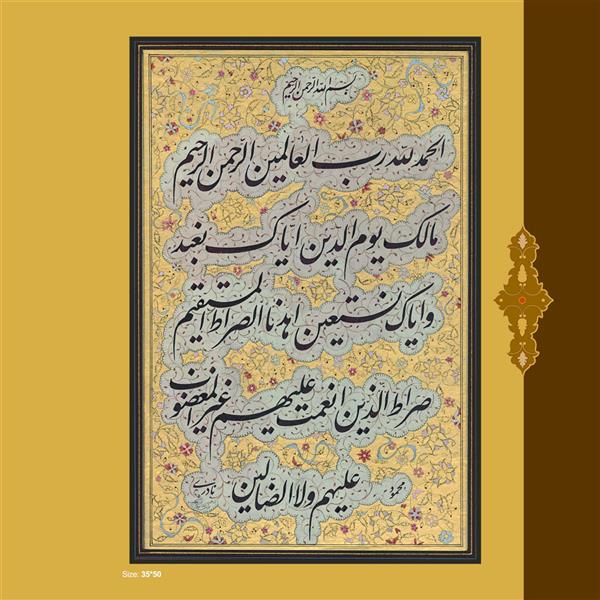 بسم الله الرحمن الرحیم
الحمد لله رب العالمین الرحمن الرحیم
مالک یوم الدین ایاک نعبد
وایاک نستعین اهدنا الصراط المستقیم
صراط الذین انعمت علیهم غیر المغضوب
علیهم ولا الضالین
محمود نادری
Size: 35*50